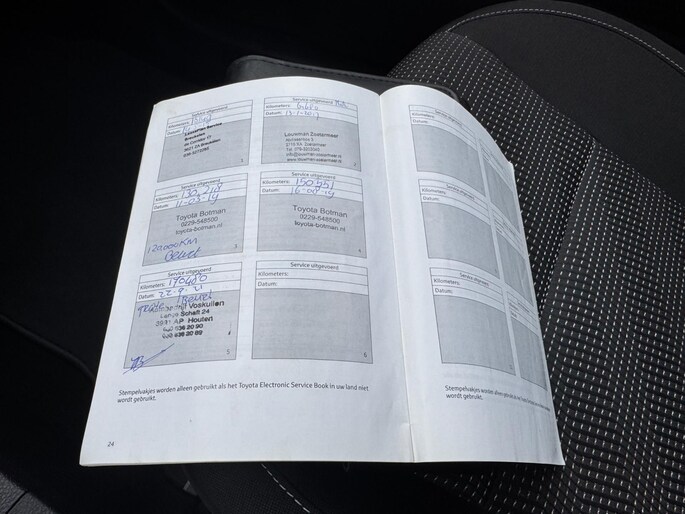 Service uitgevoerd
Kilometers:
Datum:
Louwman Service
Breukelen
1
Service uitgevoerd
Kilometers:
Datum:
Louwman Zoetermeer
info@louwman-zoetermeer.nl
www.louwman-zoetermeer.nl
2
Service uitgevoerd
Kilometers: 130.218
Datum: 11-03-19
Toyota Botman
0229-548500
toyota-botman.nl
120000KM
Beurt
3
Service uitgevoerd
Kilometers: 150.551
Datum: 16-08-19
Toyota Botman
0229-548500
toyota-botman.nl
4
Service uitgevoerd
Kilometers: 170480
Datum: 22-9-21
grote Beurt
Voskuilen
Schaft 24
3991 AP Houten
636 20 90
636 20 89
5
Service uitgevoerd
Kilometers:
Datum:
6
Stempelvakjes worden alleen gebruikt als het Toyota Electronic Service Book in uw land niet
wordt gebruikt.
24
Service uitgevoerd
Kilometers:
Datum:
Service uitgevoerd
Kilometers:
Datum:
Service uitgevoerd
Kilometers:
Datum:
Stempelvakjes worden alleen gebruikt als
wordt gebruikt.